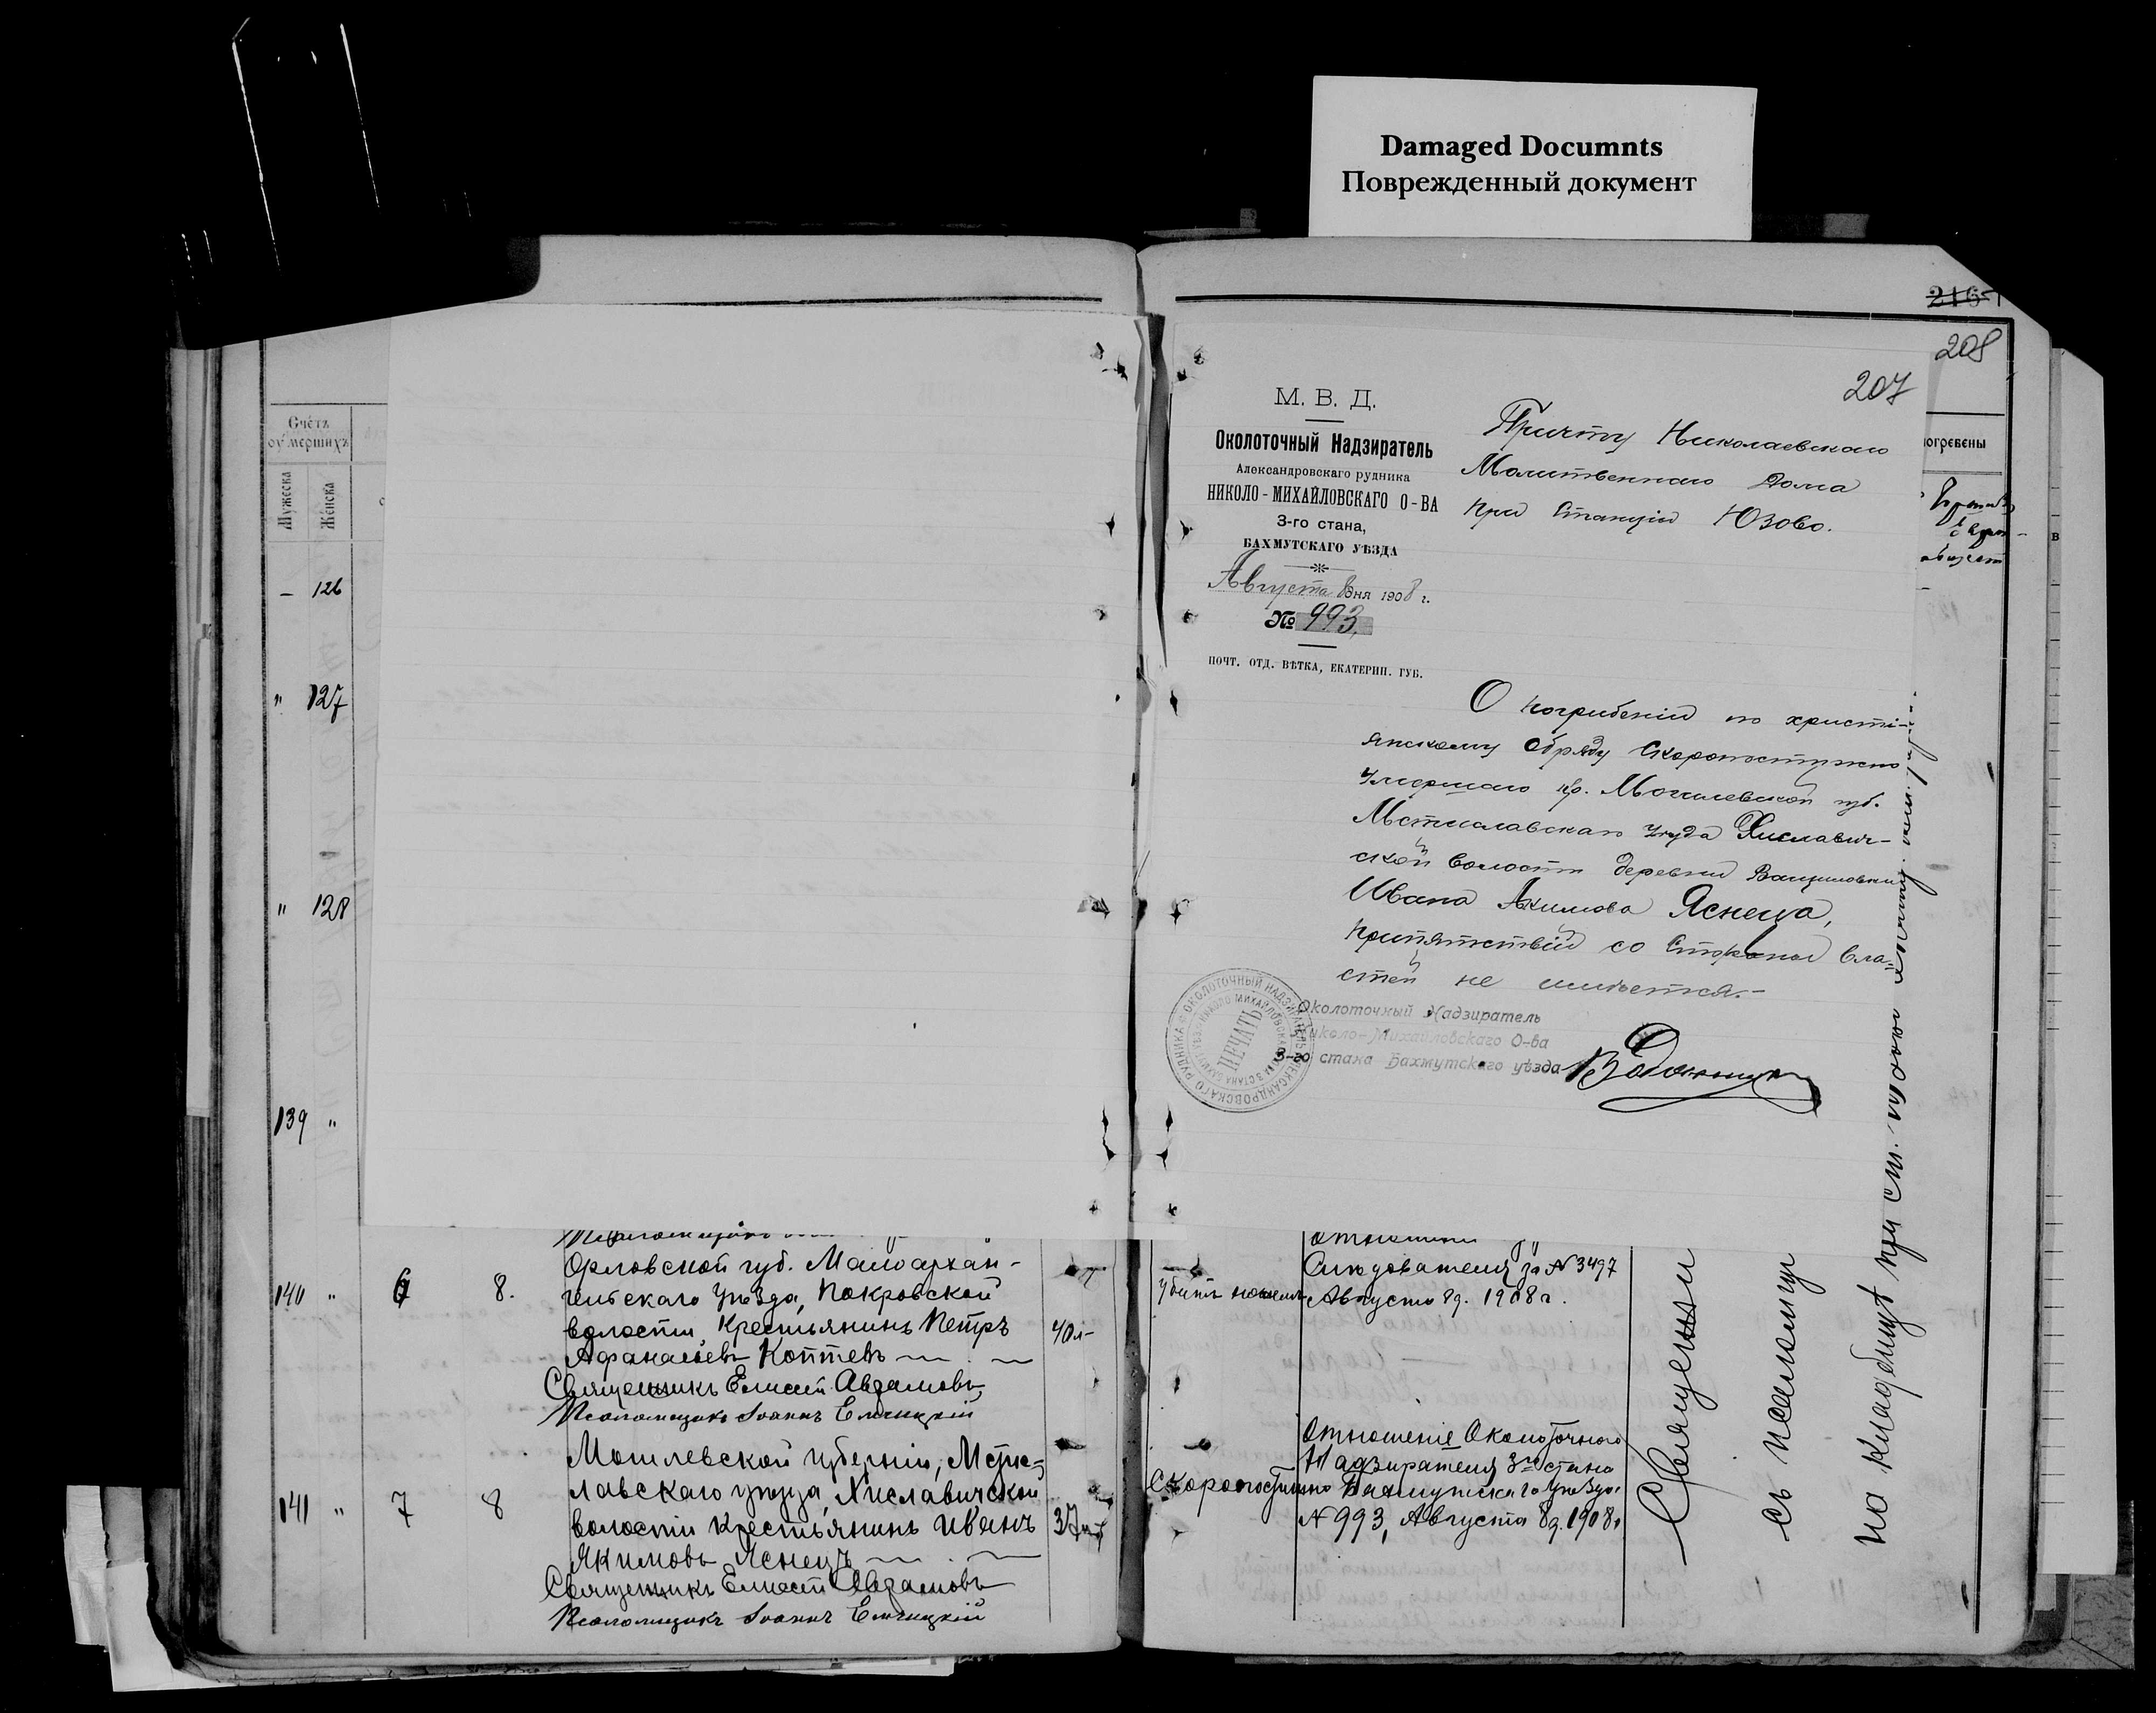 Damaged Documnts
Поврежденный документ
216
208
207
Счетъ
умершихъ
Мужеска
Женска
— 126
" 127
" 128
139 "
погребены
М. В. Д.
Околоточный Надзиратель
Александровскаго рудника
НИКОЛО-МИХАЙЛОВСКАГО О-ВА
3-го стана,
БАХМУТСКАГО УѢЗДА
Августа 8 дня 1908 г.
№ 993.
ПОЧТ. ОТД. ВѢТКА, ЕКАТЕРИН. ГУБ.
Причту Николаевскаго
Молитвеннаго Дома
при Станціи Юзово.
О погребеніи по христі-
янскому обряду Скоропостижно
Умершаго кр. Могилевской губ.
Мстиславскаго Уѣзда Хиславич-
ской волости деревни
Ивана Акимова Яснеца,
препятствій со Стороны вла-
стей не имѣется.-
Околоточный Надзиратель
Николо-Михайловскаго О-ва
3-го стана Бахмутскаго уѣзда
ПЕЧАТЬ
140 " 6 8.
Орловской губ. Малоархан-
гельскаго Уѣзда, Покровской
волости, Крестьянинъ Петръ
Афанасьевъ Коптевъ
40 л-
Священникъ Елисей Авдамовъ
Псаломщикъ Іоаннъ Емчицкій
Убитъ
Слѣдователя за № 3497
Августа 8 д. 1908 г.
141 " 7 8
Могилевской губерніи, Мсти-
лавскаго уѣзда, Хиславичской
волости Крестьянинъ Иванъ
Якимовъ Яснецъ
37
Священникъ Елисей Авдамовъ
Псаломщикъ Іоаннъ Емчицкій
Скоропостижно
Отношеніе Околоточнаго
Надзирателя 3го стана
Бахмутскаго Уѣзда
№ 993, Августа 8 д. 1908 г
Священ
съ псаломщ
на кладбищѣ при ст.